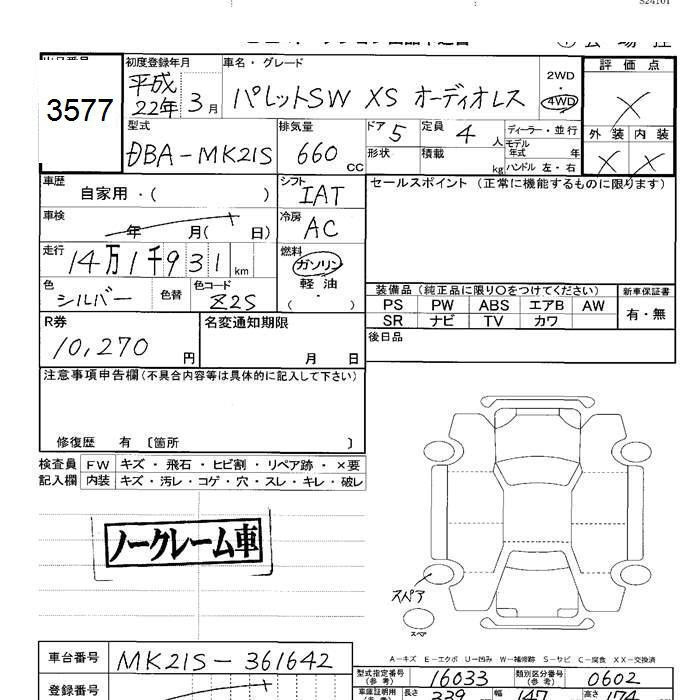 S24101
出品番号
3577
初度登録年月
平成
22年 3月
車名・グレード
パレットSW XS オーディオレス
2WD
・
4WD
評 価 点
X
外 装 内 装
X X
型式
DBA-MK21S
排気量
660 CC
ドア 5
形状
定員 4 人
積載 kg
ディーラー・並行
モデル年式 年
ハンドル 左・右
車歴
自家用・( )
シフト
IAT
セールスポイント (正常に機能するものに限ります)
車検
年 月( 日)
冷房
AC
走行
14万1千931km
燃料
ガソリン
軽 油
( ・ )
色
シルバー
色替
色コード
Z2S
装備品(純正品に限り○をつけてください)
新車保証書
PS PW ABS エアB AW
SR ナビ TV カワ
有・無
R券
10,270 円
名変通知期限
月 日
後日品
注意事項申告欄(不具合内容等は具体的に記入して下さい)
修復歴 有 〔箇所 〕
検査員 FW キズ・飛石・ヒビ割・リペア跡・×要
記入欄 内装 キズ・汚レ・コゲ・穴・スレ・キレ・破レ
ノークレーム車
スペア
スペア
A-キズ E-エクボ U-凹み W-補修跡 S-サビ C-腐食 XX-交換済
車台番号 MK21S-361642
登録番号
型式指定番号(参考) 16033
類別区分番号(参考) 0602
車庫証明用(参考) 長さ 339 幅 147 高さ 174